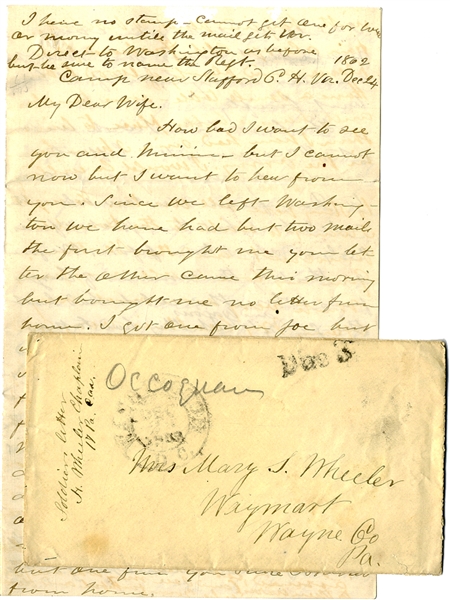 I have no stamp - cannot get one for love
or mony untill the mail gets Ver.
Direct to Washington as before
but be sure to name the Regt. 1862
Camp near Stafford C. H. Va. Dec 24
My Dear Wife.
How bad I want to see
you and Minnie - but I cannot
now but I want to hear from
you. Since we left Washing-
ton we have had but two mails
the first brought me your let
ter the other came this morning
but brought me no letter from
home. I got one from Joe but
Due 3
Occoquan
Soldiers letter
Wheeler Chaplin
17 Pa. Cav.
Mrs Mary S. Wheeler
Waymart
Wayne Co
Pa.
but one from you since
from home.